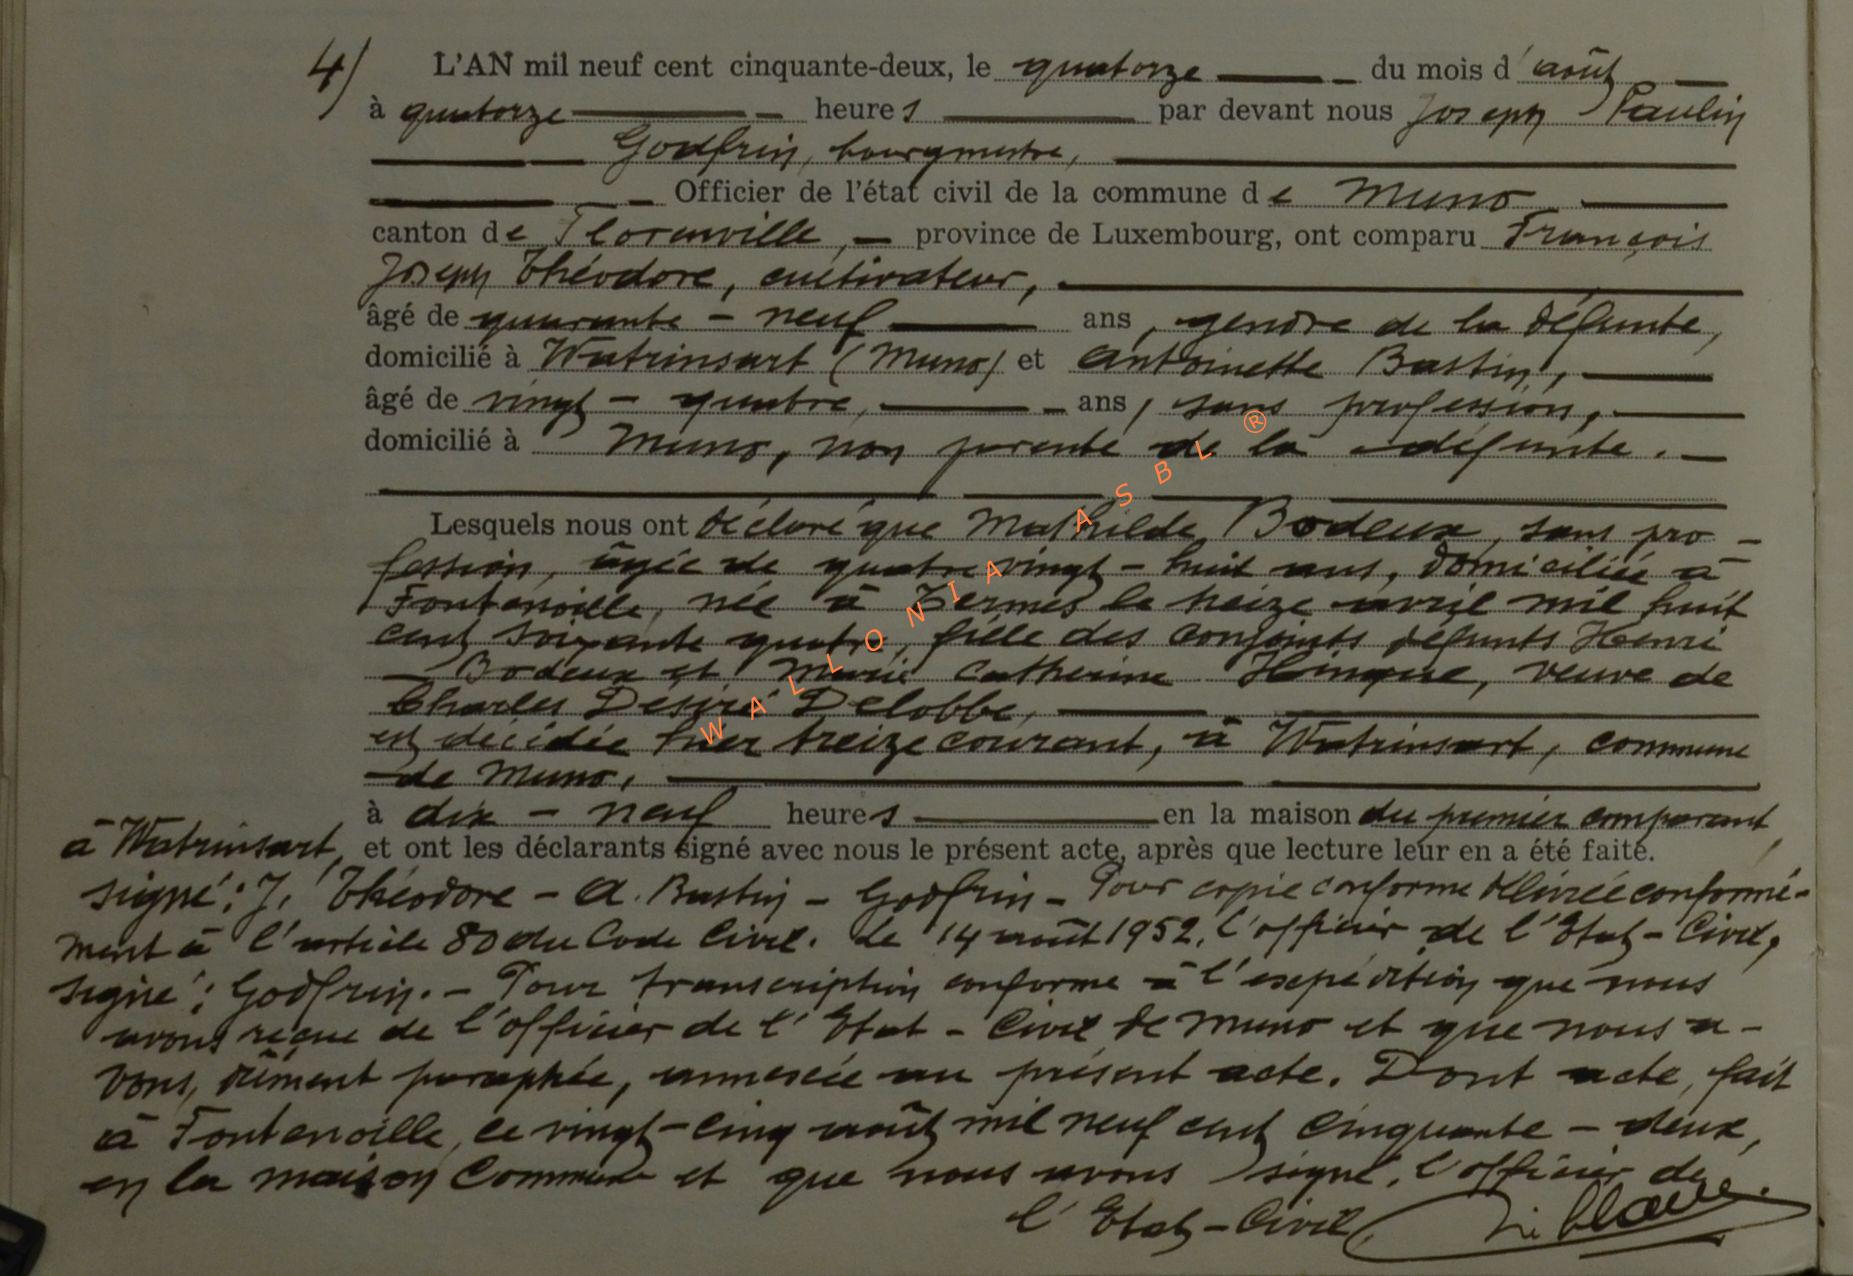 4) L'AN mil neuf cent cinquante-deux, le quatorze du mois d'août
à quatorze heures par devant nous Joseph Paulin
Godfrin, bourgmestre,
Officier de l'état civil de la commune de Muno
canton de Florenville, province de Luxembourg, ont comparu François
Joseph Théodore, cultivateur,
âgé de quarante-neuf ans, gendre de la défunte,
domicilié à Watrinsart (Muno) et Antoinette Bastin,
âgé de vingt-quatre, ans, sans profession,
domicilié à Muno, non parente de la défunte.
Lesquels nous ont déclaré que Mathilde Bodeux, sans pro-
fession, âgée de quatre vingt-huit ans, domiciliée à
Fontenoille, née à Termes le treize avril mil huit
cent soixante quatre, fille des conjoints défunts Henri
Bodeux et Marie Catherine veuve de
Charles Désiré Delobbe,
est décédée hier treize courant, à Watrinsart, commune
de Muno,
à dix-neuf heures en la maison du premier comparant,
à Watrinsart, et ont les déclarants signé avec nous le présent acte, après que lecture leur en a été faite.
signé: J. Théodore - A. Bastin - Godfrin - Pour copie conforme délivrée conformé-
ment à l'article 80 du Code Civil. Le 14 août 1952, l'officier de l'Etat-Civil,
signé: Godfrin. - Pour transcription conforme à l'expédition que nous
avons reçue de l'officier de l'Etat-Civil de Muno et que nous a-
vons, dûment paraphée, annexée au présent acte. Dont acte, fait
à Fontenoille, ce vingt-cinq août mil neuf cent cinquante-deux,
en la maison Commune et que nous avons signé. l'officier de
l'Etat-Civil,
WALLONIA ASBL ®